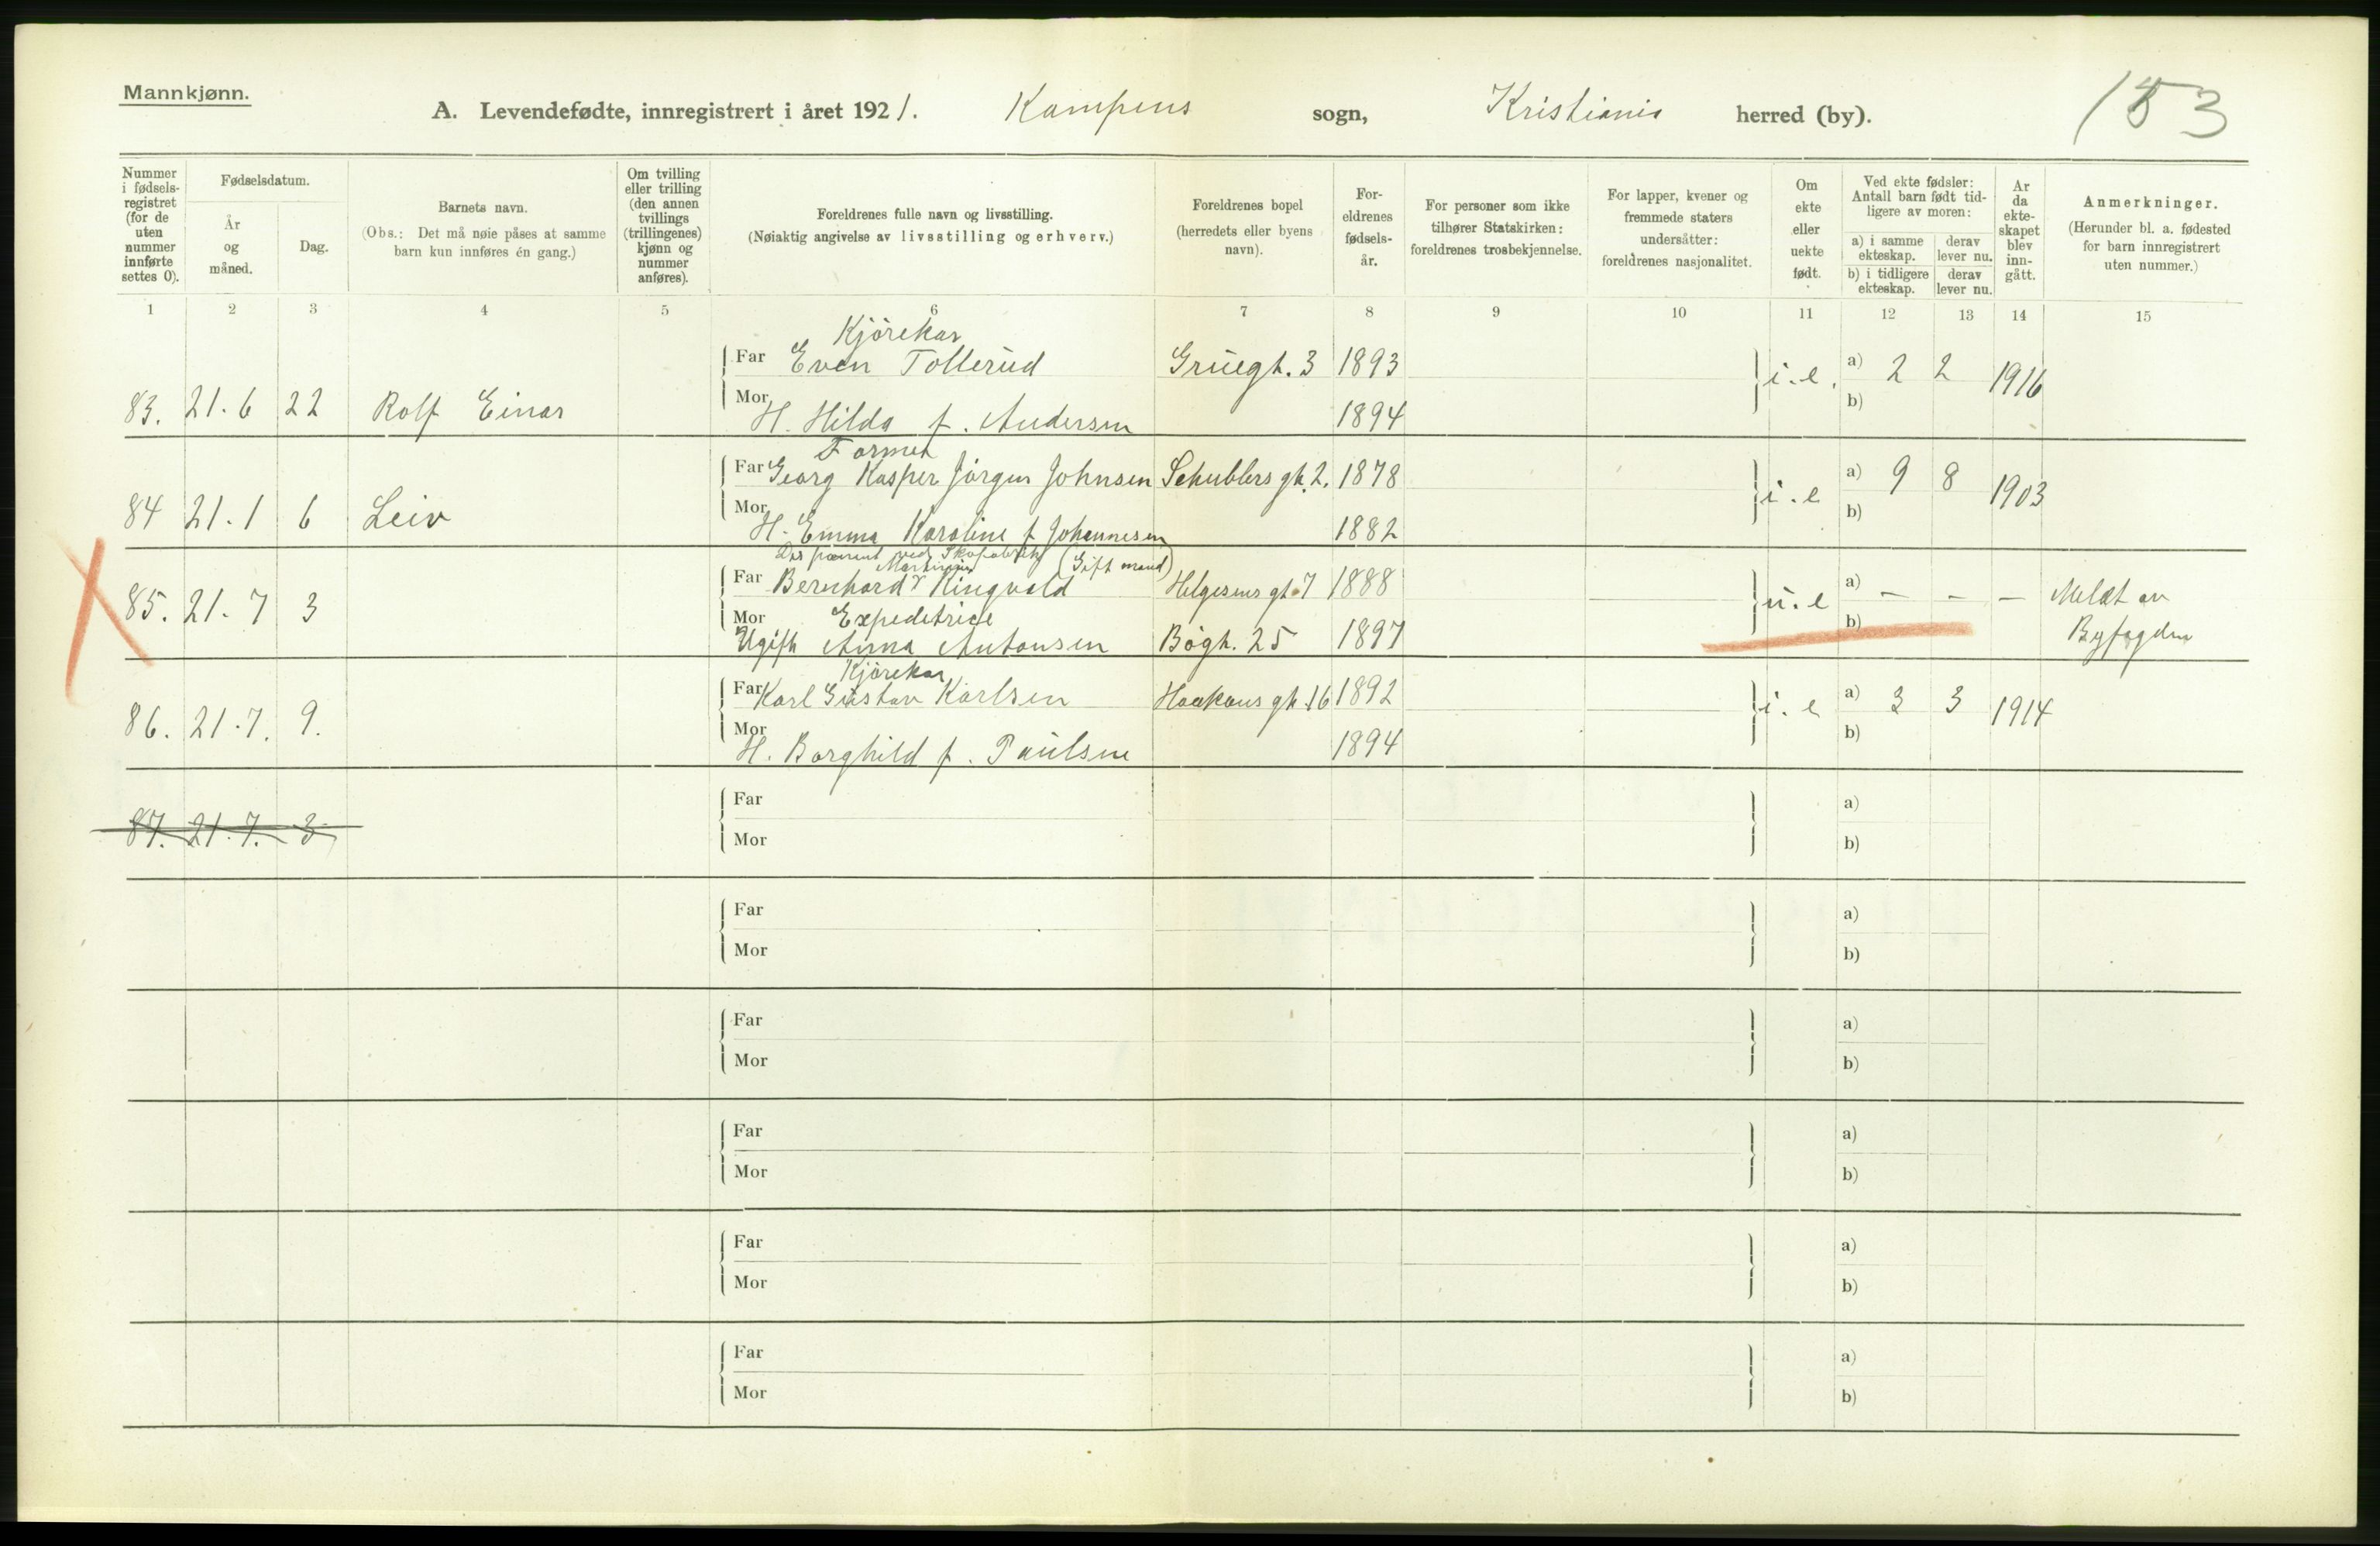 Mannkjønn.
A. Levendefødte, innregistrert i året 1921. Kampens sogn, Kristiania herred (by). 153
Nummer i fødselsregistret (for de uten nummer innførte settes 0).
Fødselsdatum.
År og måned.
Dag.
Barnets navn.
(Obs.: Det må nøie påses at samme barn kun innføres én gang.)
Om tvilling eller trilling (den annen tvillings (trillingenes) kjønn og nummer anføres).
Foreldrenes fulle navn og livsstilling.
(Nøiaktig angivelse av livsstilling og erhverv.)
Foreldrenes bopel (herredets eller byens navn).
Foreldrenes fødselsår.
For personer som ikke tilhører Statskirken: foreldrenes trosbekjennelse.
For lapper, kvener og fremmede staters undersåtter: foreldrenes nasjonalitet.
Om ekte eller uekte født.
Ved ekte fødsler: Antall barn født tidligere av moren:
a) i samme ekteskap. derav lever nu.
b) i tidligere ekteskap. derav lever nu.
Ar da ekteskapet blev inngått.
Anmerkninger.
(Herunder bl. a. fødested for barn innregistrert uten nummer.)
1 2 3 4 5 6 7 8 9 10 11 12 13 14 15
Kjørekar
Far Even Tollerud Gruegt. 3 1893 i.e. a) 2 2 1916
83. 21.6 22 Rolf Einar
Mor H. Hilda f. Andersen 1894 b)
Former
Far Georg Kasper Jørgen Johnsen Schüblers gt. 2. 1878 i.e a) 9 8 1903
84 21.1 6 Leiv
Mor H. Emma Karoline f Johannesen 1882 b)
ved Skofabrik (Gift mand)
Far Bernhard Martinius Ringvold Helgesens gt. 7 1888 u.e a) – – – Meldt av
85. 21.7 3
Mor Expeditrice b) Byfogden
Ugift Anna Antonsen Bøgt. 25 1897
Kjørekar
Far Karl Gustav Karlsen Haakons gt. 16 1892 i.e a) 3 3 1914
86. 21.7. 9.
Mor H. Borghild f. Paulsen 1894 b)
Far a)
87. 21.7. 3
Mor b)
Far a)
Mor b)
Far a)
Mor b)
Far a)
Mor b)
Far a)
Mor b)
Far a)
Mor b)